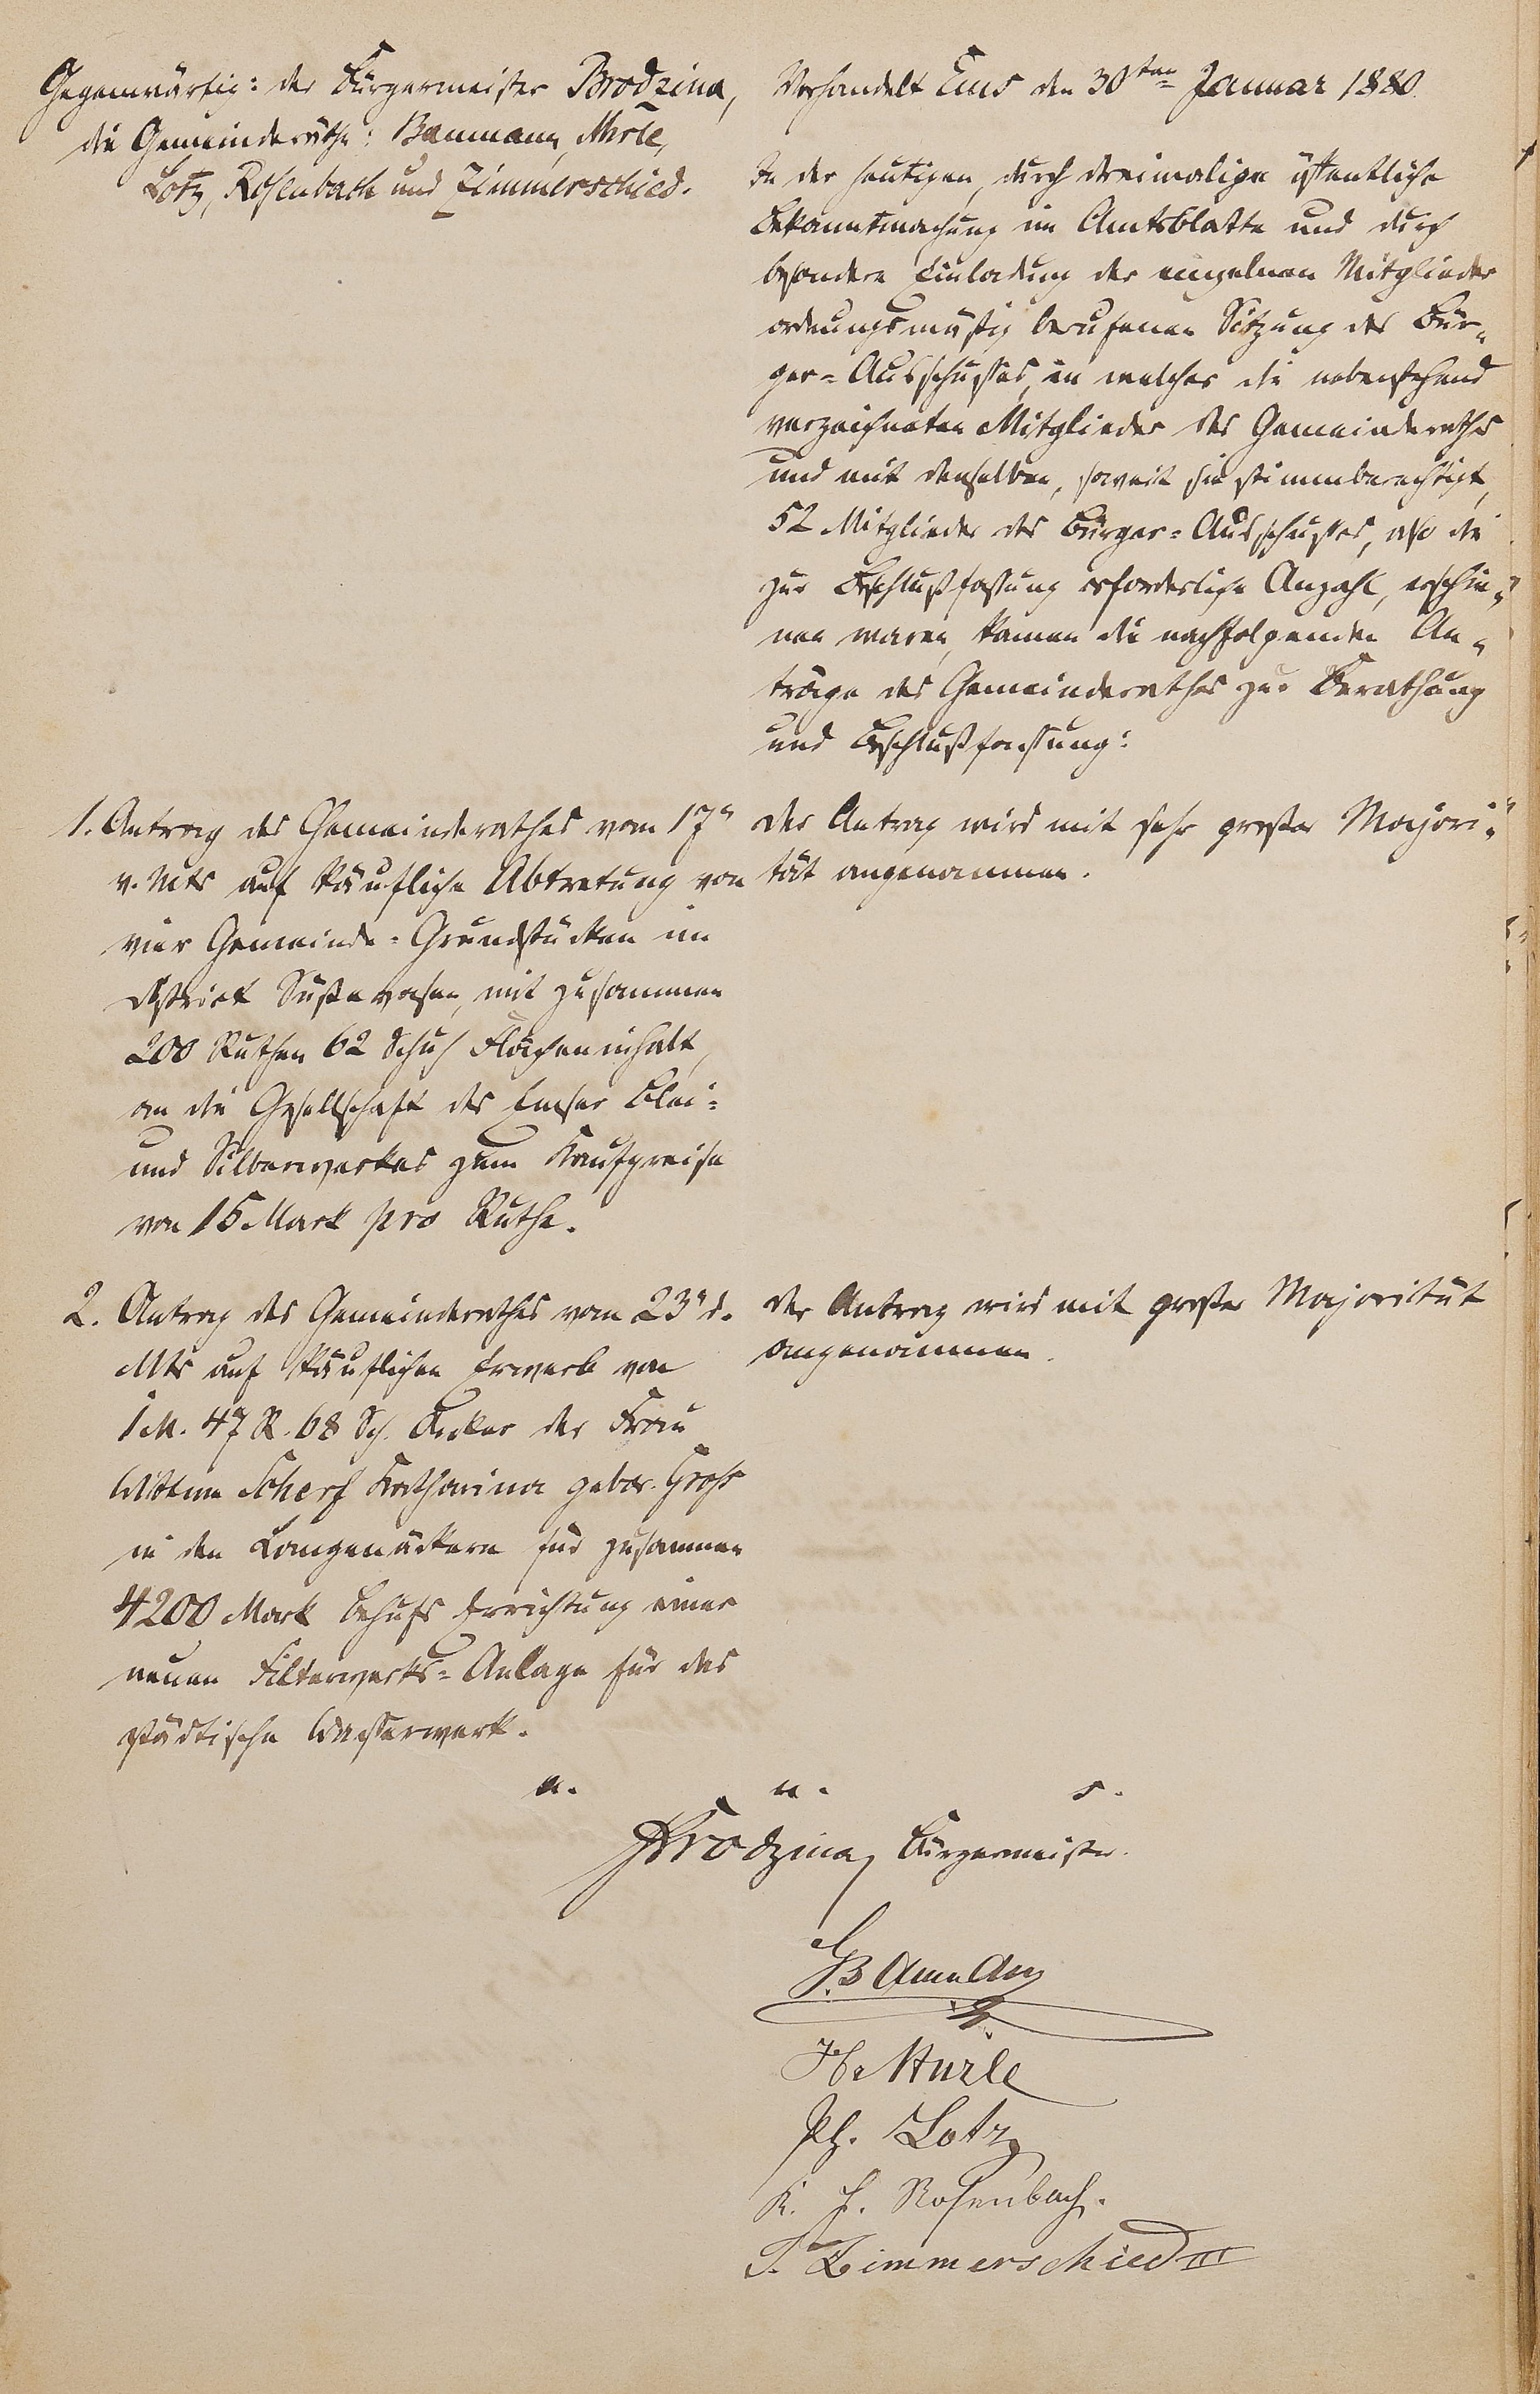 Gegenwärtig: der Bürgermeister Brodzina,
die Gemeinderäthe: Baumann, Ahrle,
Lotz, Rosenbach und Zimmerschied.
Verhandelt Ems den 30ten Januar 1880.
In der heutigen, durch dreimalige öffentliche
Bekanntmachung im Amtsblatte und durch
besondere Einladung der einzelnen Mitglieder
ordnungsmäßig berufenen Sitzung des Bür-
ger-Ausschusses, in welcher die nebenstehend
verzeichneten Mitglieder des Gemeinderaths
und mit denselben, soweit sie stimmberechtigt,
52 Mitglieder des Bürger-Ausschusses, also die
zur Beschlußfassung erforderliche Anzahl, erschie-
nen waren, kamen die nachfolgenden An-
träge des Gemeinderathes zur Berathung
und Beschlußfassung:
1. Antrag des Gemeinderathes vom 17n
v. Mts auf käufliche Abtretung von
vier Gemeinde-Grundstücken im
District, mit zusammen
200 Ruthen 62 Schuh Flächeninhalt,
an die Gesellschaft des Emser Blei-
und Silberwerkes zum Kaufpreise
von 15 Mark pro Ruthe.
Der Antrag wird mit sehr großer Majori-
tät angenommen.
2. Antrag des Gemeinderathes vom 23n d.
Mts auf käuflichen Erwerb von
1 M. 47 R. 68 Sch. Acker der Frau
Wittwe Scherf Katharina gebor. Groß
in den Langenäckern für zusammen
4200 Mark behufs Errichtung einer
neuen Filterwerks-Anlage für das
städtische Wasserwerk.
Der Antrag wird mit großer Majorität
angenommen.
a. u. s.
Brodzina, Bürgermeister.
G. Baumann
Ph. Lotz
K. F. Rosenbach.
P. Zimmerschied III